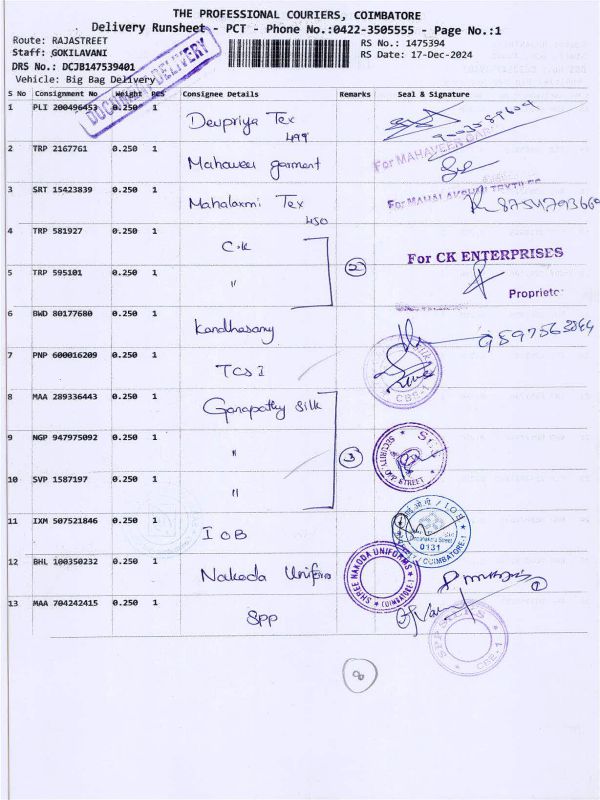 THE PROFESSIONAL COURIERS, COIMBATORE
Delivery Runsheet - PCT - Phone No.:0422-3505555 - Page No.:1
Route: RAJASTREET
Staff: GOKILAVANI
DRS No.: DCJB147539401
Vehicle: Big Bag Delivery
RS No.: 1475394
RS Date: 17-Dec-2024
DOCUMENT DELIVERY
S No Consignment No Weight PCS Consignee Details Remarks Seal & Signature
1 PLI 200496453 0.250 1 Devpriya Tex
499
2 TRP 2167761 0.250 1 Mahaveer garment
For MAHAVEER
3 SRT 15423839 0.250 1 Mahalaxmi Tex
450
For MAHALAKSHMI TEXTILES
4 TRP 581927 0.250 1 C.K
For CK ENTERPRISES
5 TRP 595101 0.250 1 "
2
Proprietor
6 BWD 80177680 0.250 1 Kandhasamy
7 PNP 600016209 0.250 1 TCS I
CBE-1
8 MAA 289336443 0.250 1 Ganapathy Silk
9 NGP 947975092 0.250 1 "
3
SECURITY
OPP STREET
10 SVP 1587197 0.250 1 "
11 IXM 507521846 0.250 1 IOB
IOB
0131
COIMBATORE-1
12 BHL 100350232 0.250 1 Nakoda Uniform
SHREE NAKODA UNIFORMS
COIMBATORE-1
13 MAA 704242415 0.250 1 SPP
SPP SILKS
CBE-1